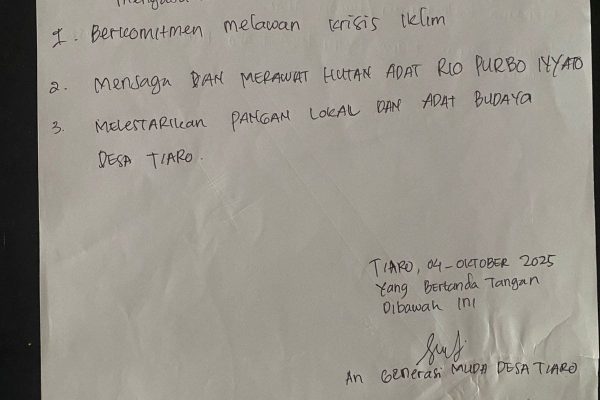 1. Berkomitmen melawan krisis iklim
2. Mensaga DAN MERAWAT HUTAN ADAT RIO PURBO NYATO
3. MELESTARIkan PANGAN LOKAL DAN ADAT BUDAYA
DESA TIARO.
TIARO, 04-OKTOBER 2025
Yang Bertanda Tangan
Dibawah Ini
An Generasi MUDA DESA TIARO